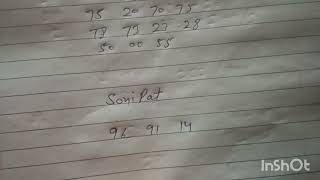 75 20 70 75
73 79 27 28
50 00 55
SoniPat
96 91 14
InShOt